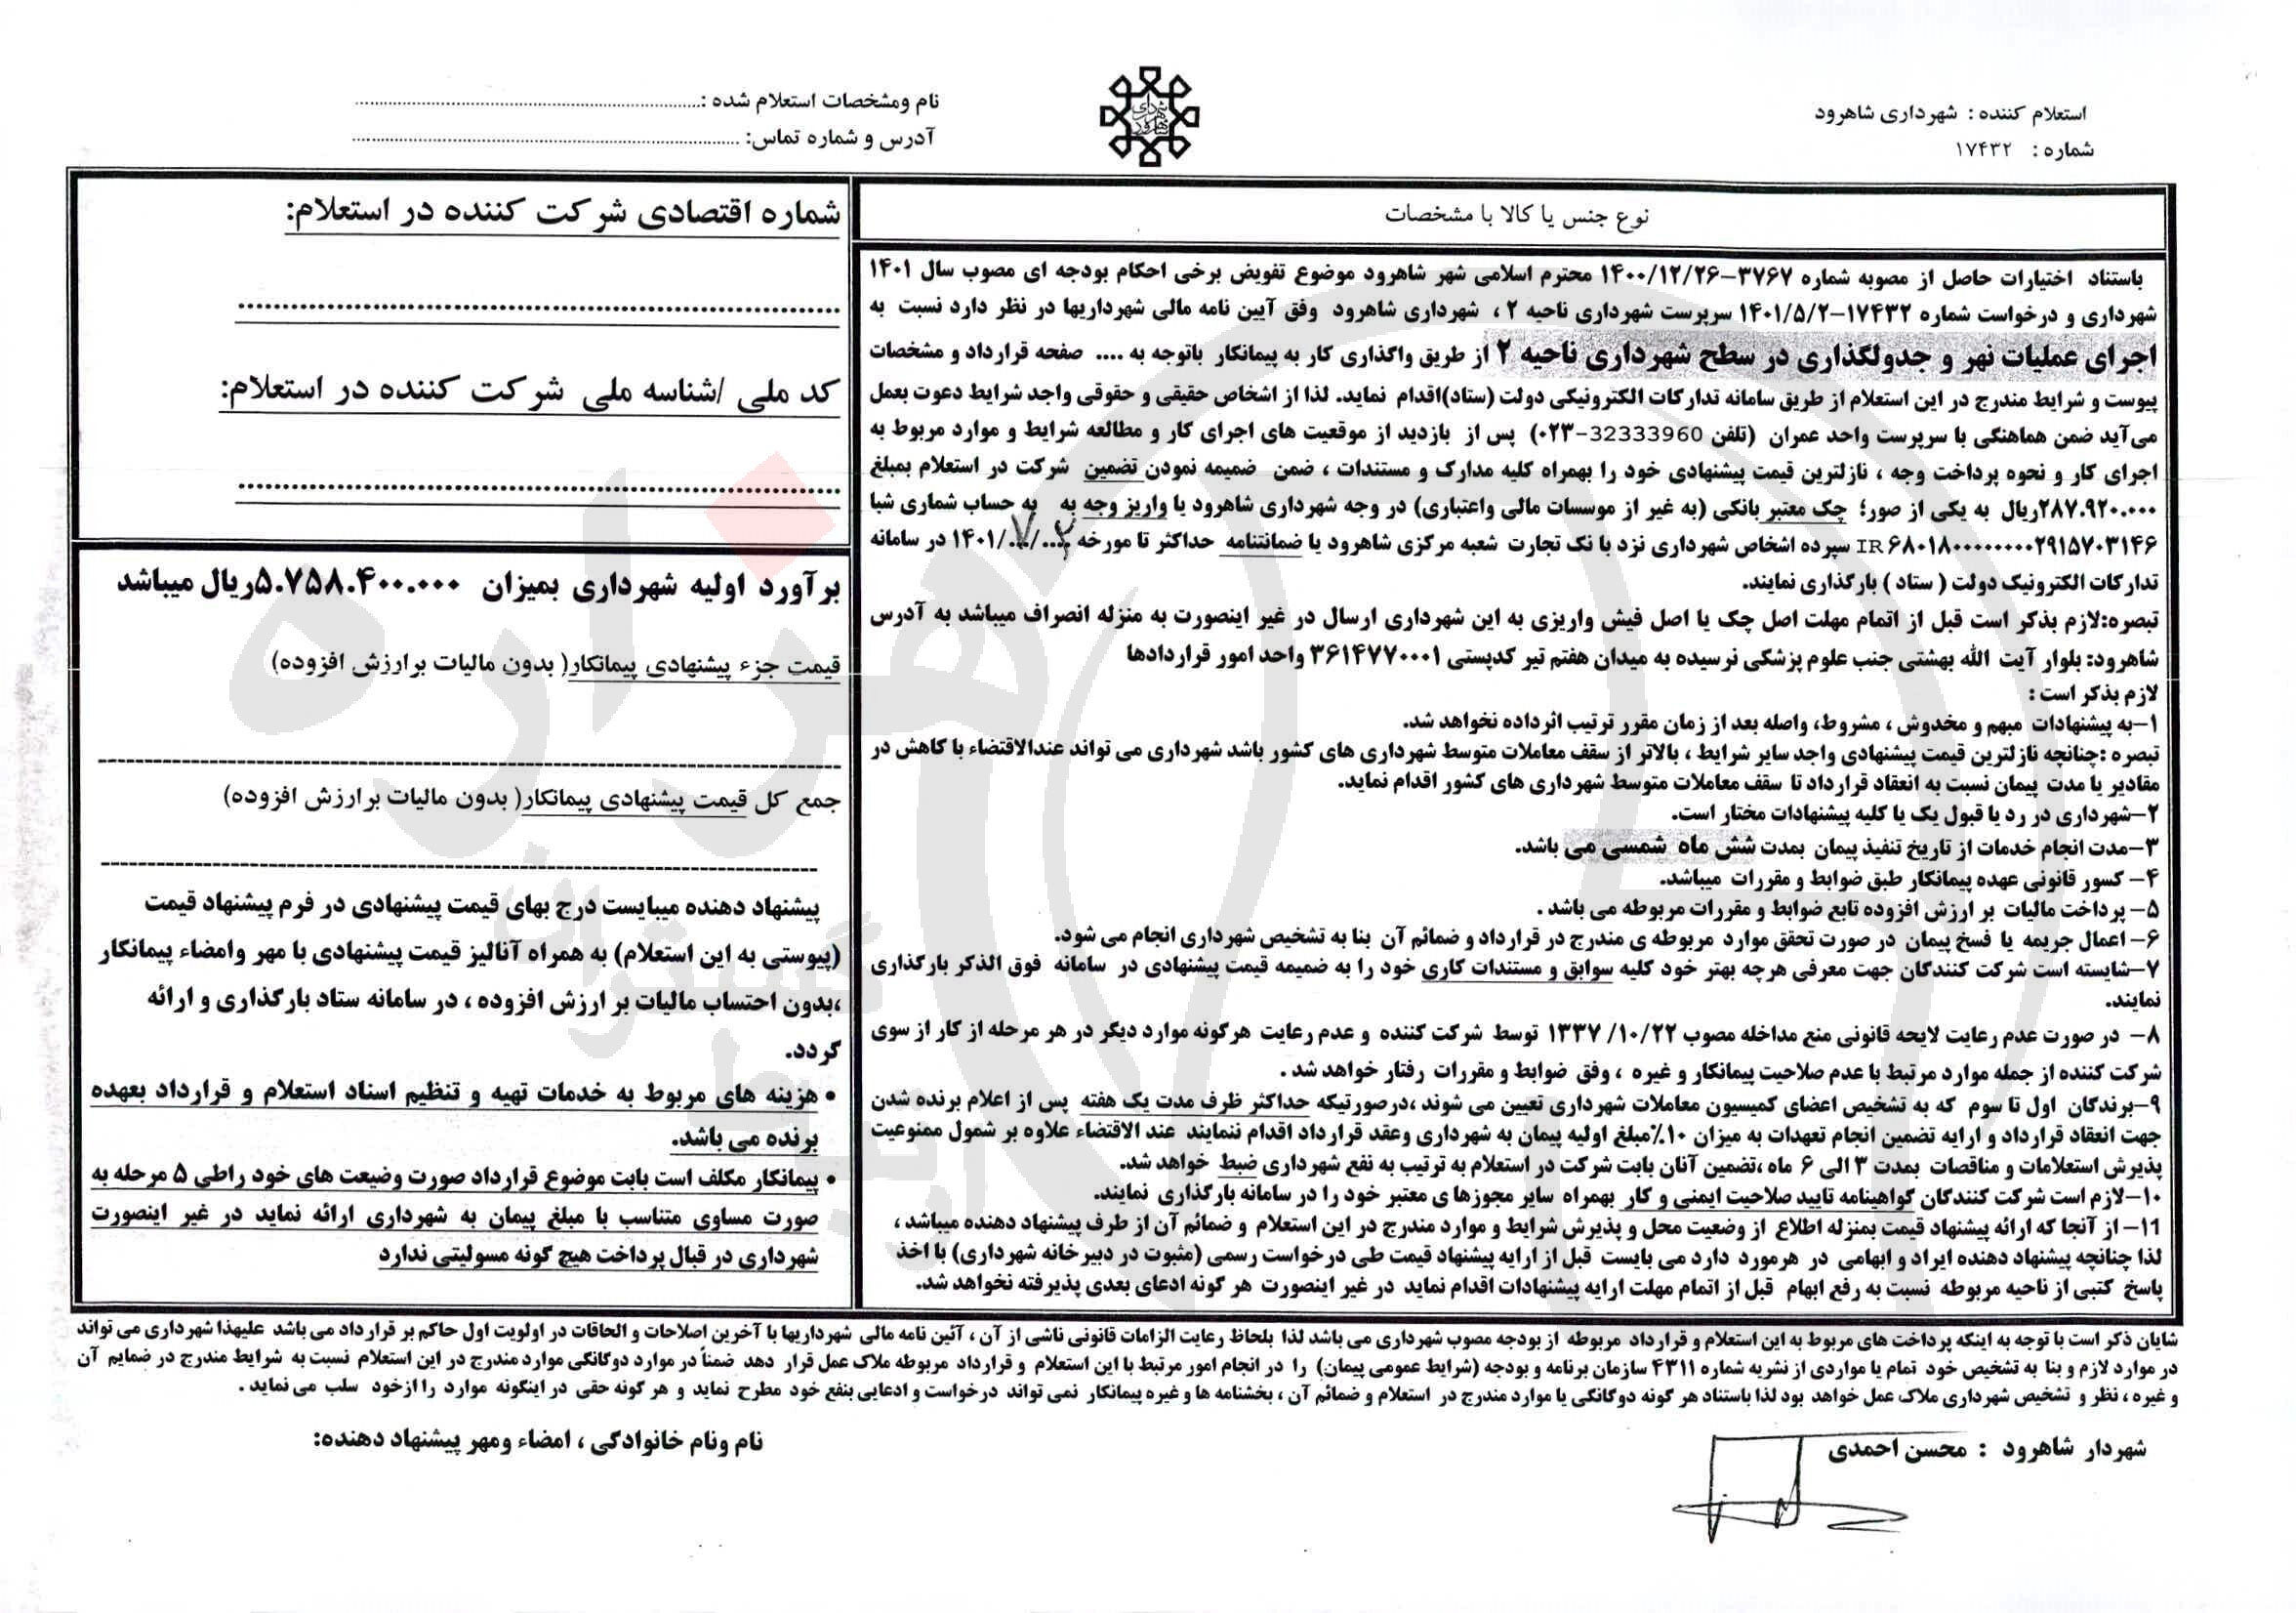 استعلام کننده : شهرداری شاهرود
شماره : ۱۷۴۳۲
شهرداری شاهرود
نام ومشخصات استعلام شده :
آدرس و شماره تماس:
نوع جنس یا کالا با مشخصات
باستناد اختیارات حاصل از مصوبه شماره ۳۷۶۷-۱۴۰۰/۱۲/۲۶ محترم اسلامی شهر شاهرود موضوع تفویض برخی احکام بودجه ای مصوب سال ۱۴۰۱
شهرداری و درخواست شماره ۱۷۴۳۲-۱۴۰۱/۵/۲ سرپرست شهرداری ناحیه ۲ ، شهرداری شاهرود وفق آیین نامه مالی شهرداریها در نظر دارد نسبت به
اجرای عملیات نهر و جدولگذاری در سطح شهرداری ناحیه ۲ از طریق واگذاری کار به پیمانکار باتوجه به .... صفحه قرارداد و مشخصات
پیوست و شرایط مندرج در این استعلام از طریق سامانه تدارکات الکترونیکی دولت (ستاد)اقدام نماید. لذا از اشخاص حقیقی و حقوقی واجد شرایط دعوت بعمل
می‌آید ضمن هماهنگی با سرپرست واحد عمران (تلفن 32333960-۰۲۳) پس از بازدید از موقعیت های اجرای کار و مطالعه شرایط و موارد مربوط به
اجرای کار و نحوه پرداخت وجه ، نازلترین قیمت پیشنهادی خود را بهمراه کلیه مدارک و مستندات ، ضمن ضمیمه نمودن تضمین شرکت در استعلام بمبلغ
۲۸۷.۹۲۰.۰۰۰ریال به یکی از صور؛ چک معتبر بانکی (به غیر از موسسات مالی واعتباری) در وجه شهرداری شاهرود یا واریز وجه به به حساب شماری شبا
IR۶۸۰۱۸۰۰۰۰۰۰۰۰۲۹۱۵۷۰۳۱۴۶ سپرده اشخاص شهرداری نزد بانک تجارت شعبه مرکزی شاهرود یا ضمانتنامه حداکثر تا مورخه ..../..../۱۴۰۱ در سامانه
تدارکات الکترونیک دولت ( ستاد ) بارگذاری نمایند.
تبصره:لازم بذکر است قبل از اتمام مهلت اصل چک یا اصل فیش واریزی به این شهرداری ارسال در غیر اینصورت به منزله انصراف میباشد به آدرس
شاهرود: بلوار آیت الله بهشتی جنب علوم پزشکی نرسیده به میدان هفتم تیر کدپستی ۳۶۱۴۷۷۰۰۰۱ واحد امور قراردادها
لازم بذکر است :
۱-به پیشنهادات مبهم و مخدوش ، مشروط، واصله بعد از زمان مقرر ترتیب اثرداده نخواهد شد.
تبصره :چنانچه نازلترین قیمت پیشنهادی واجد سایر شرایط ، بالاتر از سقف معاملات متوسط شهرداری های کشور باشد شهرداری می تواند عندالاقتضاء با کاهش در
مقادیر یا مدت پیمان نسبت به انعقاد قرارداد تا سقف معاملات متوسط شهرداری های کشور اقدام نماید.
۲-شهرداری در رد یا قبول یک یا کلیه پیشنهادات مختار است.
۳-مدت انجام خدمات از تاریخ تنفیذ پیمان بمدت شش ماه شمسی می باشد.
۴- کسور قانونی عهده پیمانکار طبق ضوابط و مقررات میباشد.
۵- پرداخت مالیات بر ارزش افزوده تابع ضوابط و مقررات مربوطه می باشد .
۶- اعمال جریمه یا فسخ پیمان در صورت تحقق موارد مربوطه ی مندرج در قرارداد و ضمائم آن بنا به تشخیص شهرداری انجام می شود.
۷-شایسته است شرکت کنندگان جهت معرفی هرچه بهتر خود کلیه سوابق و مستندات کاری خود را به ضمیمه قیمت پیشنهادی در سامانه فوق الذکر بارگذاری
نمایند.
۸- در صورت عدم رعایت لایحه قانونی منع مداخله مصوب ۱۳۳۷/۱۰/۲۲ توسط شرکت کننده و عدم رعایت هرگونه موارد دیگر در هر مرحله از کار از سوی
شرکت کننده از جمله موارد مرتبط با عدم صلاحیت پیمانکار و غیره ، وفق ضوابط و مقررات رفتار خواهد شد .
۹-برندگان اول تا سوم که به تشخیص اعضای کمیسیون معاملات شهرداری تعیین می شوند ،درصورتیکه حداکثر ظرف مدت یک هفته پس از اعلام برنده شدن
جهت انعقاد قرارداد و ارایه تضمین انجام تعهدات به میزان ۱۰٪مبلغ اولیه پیمان به شهرداری وعقد قرارداد اقدام ننمایند عند الاقتضاء علاوه بر شمول ممنوعیت
پذیرش استعلامات و مناقصات بمدت ۳ الی ۶ ماه ،تضمین آنان بابت شرکت در استعلام به ترتیب به نفع شهرداری ضبط خواهد شد.
۱۰-لازم است شرکت کنندگان گواهینامه تایید صلاحیت ایمنی و کار بهمراه سایر مجوزهای معتبر خود را در سامانه بارگذاری نمایند.
۱۱- از آنجا که ارائه پیشنهاد قیمت بمنزله اطلاع از وضعیت محل و پذیرش شرایط و موارد مندرج در این استعلام و ضمائم آن از طرف پیشنهاد دهنده میباشد ،
لذا چنانچه پیشنهاد دهنده ایراد و ابهامی در هرمورد دارد می بایست قبل از ارایه پیشنهاد قیمت طی درخواست رسمی (مثبوت در دبیرخانه شهرداری) با اخذ
پاسخ کتبی از ناحیه مربوطه نسبت به رفع ابهام قبل از اتمام مهلت ارایه پیشنهادات اقدام نماید در غیر اینصورت هر گونه ادعای بعدی پذیرفته نخواهد شد.
شماره اقتصادی شرکت کننده در استعلام:
کد ملی /شناسه ملی شرکت کننده در استعلام:
برآورد اولیه شهرداری بمیزان ۵.۷۵۸.۴۰۰.۰۰۰ریال میباشد
قیمت جزء پیشنهادی پیمانکار( بدون مالیات برارزش افزوده)
جمع کل قیمت پیشنهادی پیمانکار( بدون مالیات برارزش افزوده)
پیشنهاد دهنده میبایست درج بهای قیمت پیشنهادی در فرم پیشنهاد قیمت
(پیوستی به این استعلام) به همراه آنالیز قیمت پیشنهادی با مهر وامضاء پیمانکار
،بدون احتساب مالیات بر ارزش افزوده ، در سامانه ستاد بارگذاری و ارائه
گردد.
• هزینه های مربوط به خدمات تهیه و تنظیم اسناد استعلام و قرارداد بعهده
برنده می باشد.
• پیمانکار مکلف است بابت موضوع قرارداد صورت وضعیت های خود راطی ۵ مرحله به
صورت مساوی متناسب با مبلغ پیمان به شهرداری ارائه نماید در غیر اینصورت
شهرداری در قبال پرداخت هیچ گونه مسولیتی ندارد
شایان ذکر است با توجه به اینکه پرداخت های مربوط به این استعلام و قرارداد مربوطه از بودجه مصوب شهرداری می باشد لذا بلحاظ رعایت الزامات قانونی ناشی از آن ، آئین نامه مالی شهرداریها با آخرین اصلاحات و الحاقات در اولویت اول حاکم بر قرارداد می باشد علیهذا شهرداری می تواند
در موارد لازم و بنا به تشخیص خود تمام یا مواردی از نشریه شماره ۴۳۱۱ سازمان برنامه و بودجه (شرایط عمومی پیمان) را در انجام امور مرتبط با این استعلام و قرارداد مربوطه ملاک عمل قرار دهد ضمناً در موارد دوگانگی موارد مندرج در این استعلام نسبت به شرایط مندرج در ضمایم آن
و غیره ، نظر و تشخیص شهرداری ملاک عمل خواهد بود لذا باستناد هر گونه دوگانگی یا موارد مندرج در استعلام و ضمائم آن ، بخشنامه ها و غیره پیمانکار نمی تواند درخواست و ادعایی بنفع خود مطرح نماید و هر گونه حقی در اینگونه موارد را ازخود سلب می نماید .
شهردار شاهرود : محسن احمدی
نام ونام خانوادگی ، امضاء ومهر پیشنهاد دهنده: